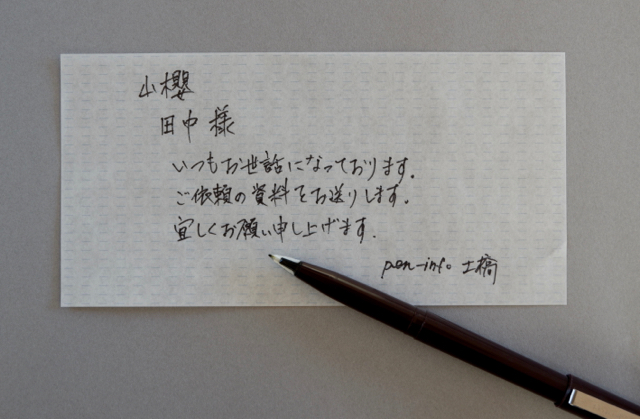 山櫻
田中様
いつもお世話になっております。
ご依頼の資料をお送りします。
宜しくお願い申し上げます.
pen-info. 土橋